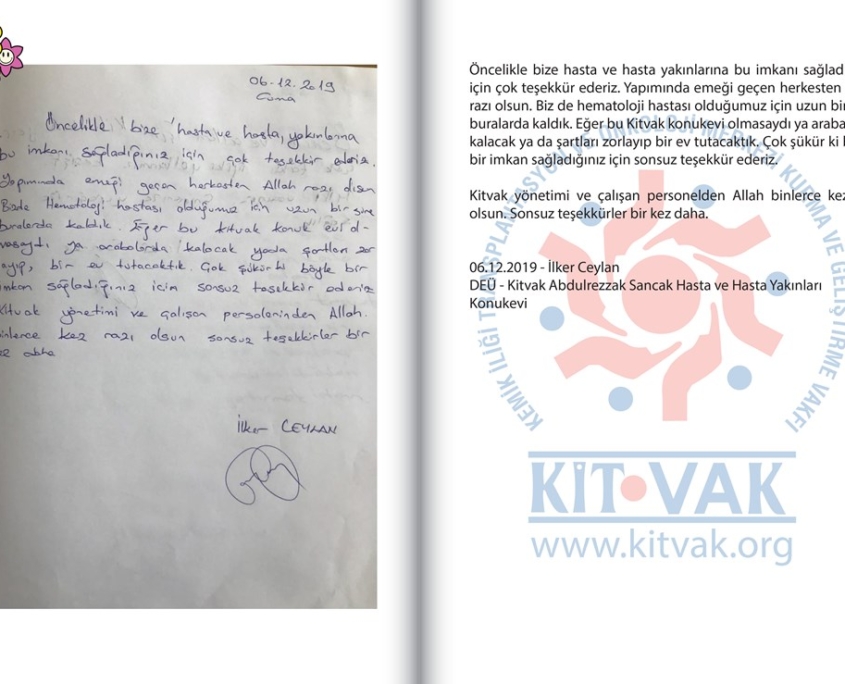 06.12.2019
Cuma
Öncelikle bize hasta ve hasta yakınlarına
bu imkanı sağladığınız için çok teşekkür ederiz.
Yapımında emeği geçen herkesten Allah razı olsun
Bizde Hematoloji hastası olduğumuz için uzun bir süre
buralarda kaldık. Eğer bu kitvak konuk evi ol-
masaydı ya arabalarda kalacak yada şartları zor
layıp, bir ev tutacaktık. Çok şükürki böyle bir
imkan sağladığınız için sonsuz teşekkür ederiz
Kitvak yönetimi ve çalışan persoleninden Allah
binlerce kez razı olsun sonsuz teşekkirler bir
İlker CEYLAN
Öncelikle bize hasta ve hasta yakınlarına bu imkanı sağlad
için çok teşekkür ederiz. Yapımında emeği geçen herkesten
razı olsun. Biz de hematoloji hastası olduğumuz için uzun bir
buralarda kaldık. Eğer bu Kitvak konukevi olmasaydı ya araba
kalacak ya da şartları zorlayıp bir ev tutacaktık. Çok şükür ki
bir imkan sağladığınız için sonsuz teşekkür ederiz.
Kitvak yönetimi ve çalışan personelden Allah binlerce kez
olsun. Sonsuz teşekkürler bir kez daha.
06.12.2019 - İlker Ceylan
DEÜ - Kitvak Abdulrezzak Sancak Hasta ve Hasta Yakınları
Konukevi
KEMİK İLİĞİ TRANSPLANTASYON VE ONKOLOJİ MERKEZİ KURMA VE GELİŞTİRME VAKFI
KİT VAK
www.kitvak.org